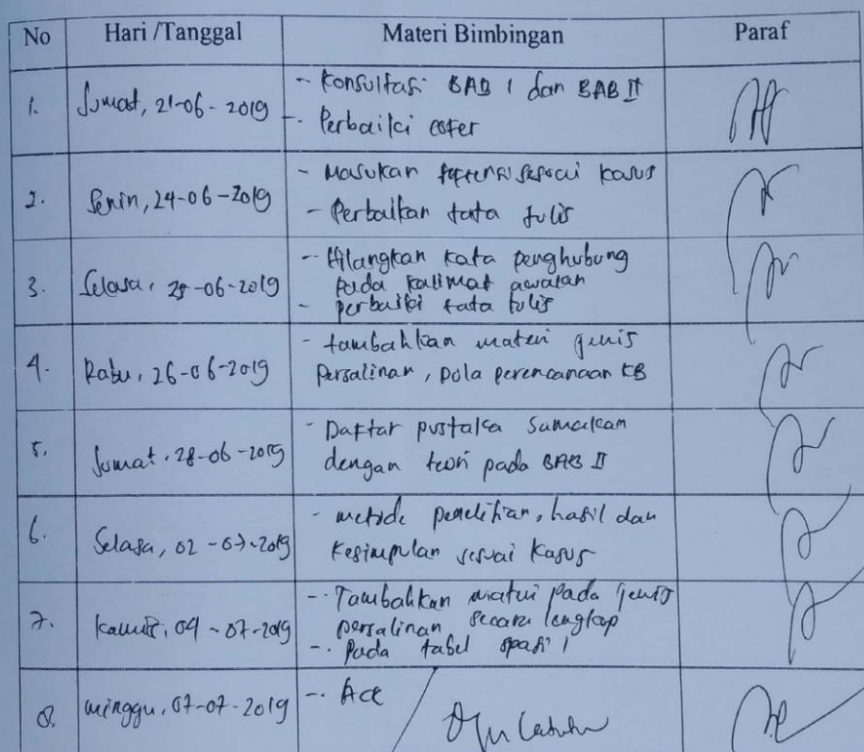 No Hari /Tanggal Materi Bimbingan Paraf
1. Jumat, 21-06-2019 - Konsultasi BAB I dan BAB II
- Perbaiki cofer
2. Senin, 24-06-2019 - Masukan sesuai kasus
- Perbaikan tata tulis
3. Selasa, 25-06-2019 - Hilangkan kata penghubung
pada kalimat awalan
- perbaiki tata tulis
4. Rabu, 26-06-2019 - tambahkan materi jenis
Persalinan, pola perencanaan KB
5. Jumat, 28-06-2019 - Daftar pustaka samakan
dengan teori pada BAB II
6. Selasa, 02-07-2019 - metode penelitian, hasil dan
Kesimpulan sesuai kasus
7. Kamis, 04-07-2019 - Tambahkan materi pada jenis
persalinan secara lengkap
- Pada tabel spasi 1
8. minggu, 07-07-2019 - Acc